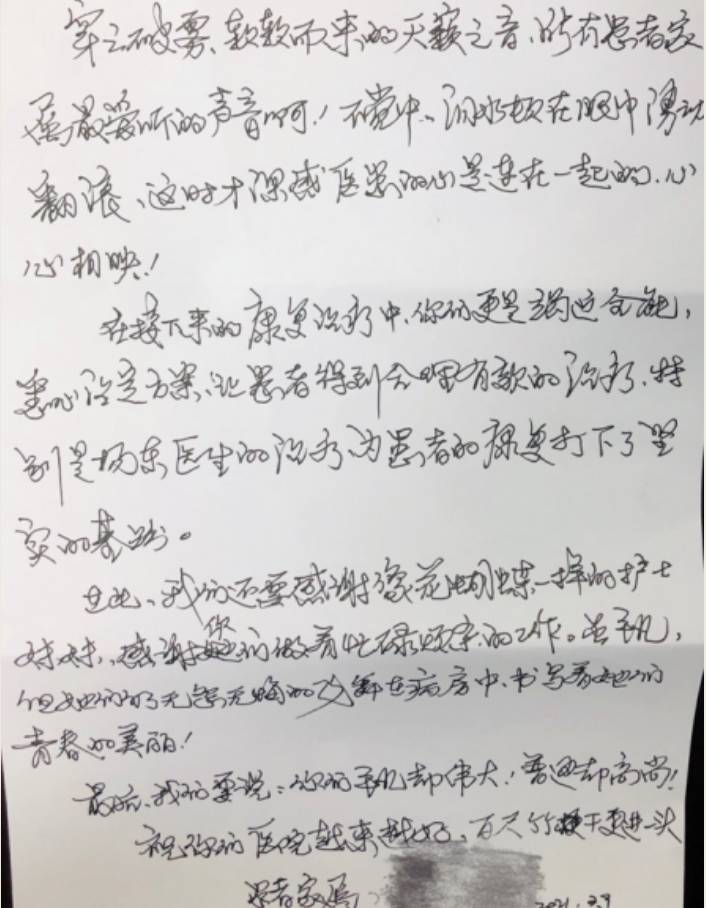 穿云破雾、款款而来的天籁之音,所有患者家
属最爱听的声音啊!不觉中、泪水顿在眼中涌动
翻滚、这时才深感医患的心是连在一起的.心
心相映!
在接下来的康复治疗中,你们更是竭尽全能,
悉心治定方案,让患者得到合理有效的治疗.特
别是杨东医生的治疗,为患者的康复打下了坚
实的基础。
在此、我们还要感谢像花蝴蝶一样的护士
妹妹,感谢你们做着忙碌烦杂的工作。虽平凡,
但她们的无怨无悔的飞舞在病房中,书写着她们
青春的美丽!
最后、我们要说:你们平凡却伟大!普通却高尚!
祝你们医院越来越好、百尺竿头更进一头
患者家属
2021.3.9